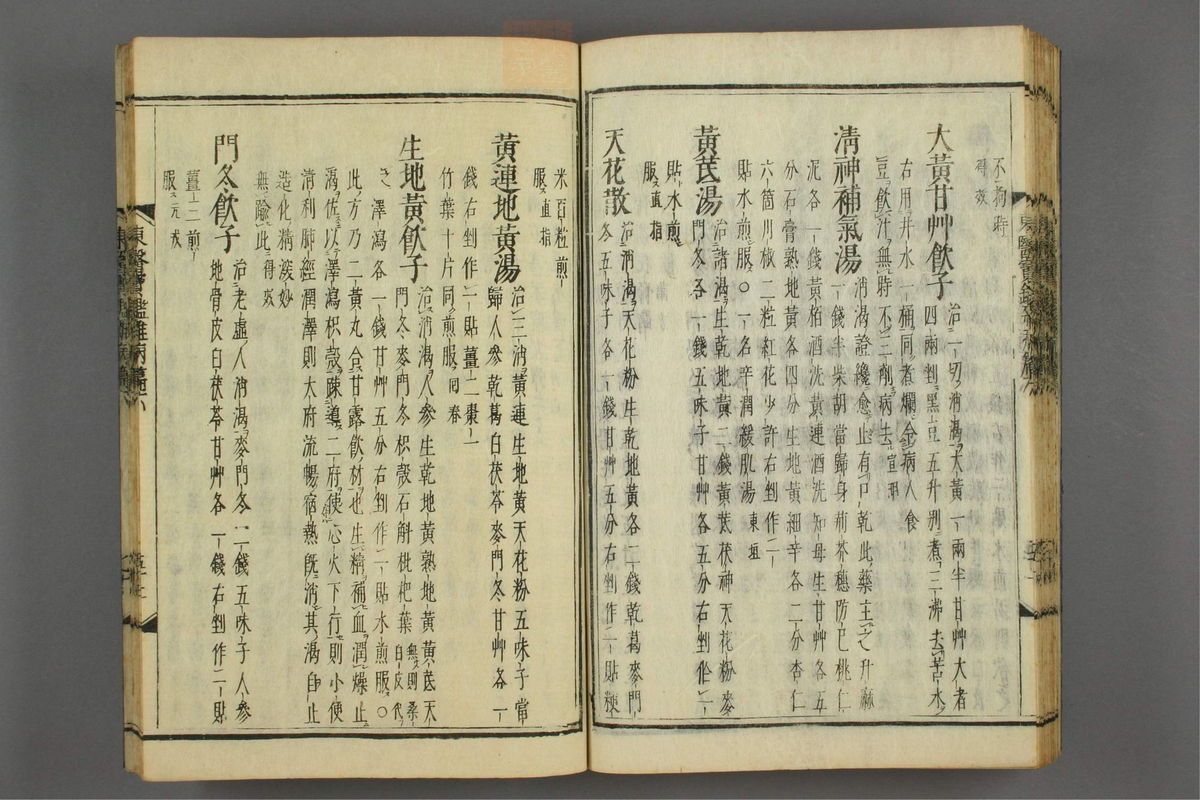 不拘時
得效
大黃甘艸飮子 治一切消渴大黃一兩半甘艸大者
四兩剉黑豆五升別煮三沸去苦水
右用井水一桶同煮爛令病人食
豆飮汁無時不三劑病去宣明
淸神補氣湯 消渴證纔愈止有口乾此藥主之升麻
一錢半柴胡當歸身荊芥穗防巳桃仁
泥各一錢黃栢酒洗黃連酒洗知母生甘艸各五
分石膏熟地黃各四分生地黃細辛各二分杏仁
六箇川椒二粒紅花少許右剉作一
貼水煎服○一名辛潤緩肌湯東垣
黃芪湯 治諸渴生乾地黃二錢黃芪茯神天花粉麥
門冬各一錢五味子甘艸各五分右剉作一
貼水煎
服直指
天花散 治消渴天花粉生乾地黃各二錢乾葛麥門
冬五味子各一錢甘艸五分右剉作一貼粳
米百粒煎
服直指
黃連地黃湯 治三消黃連生地黃天花粉五味子當
歸人參乾葛白茯苓麥門冬甘艸各一
錢右剉作一貼薑二棗一
竹葉十片同煎服回春
生地黃飮子 治消渴人參生乾地黃熟地黃黃芪天
門冬麥門冬枳殼石斛枇杷葉無則桑白皮代
之澤瀉各一錢甘艸五分右剉作一貼水煎服○
此方乃二黃丸合甘露飮材也生精補血潤燥止
渴佐以澤瀉枳殼疎導二府使心火下行則小便
淸利肺經潤澤則大府流暢宿熱旣消其渴自止
造化精深妙
無踰此得效
門冬飮子 治老虛人消渴麥門冬二錢五味子人參
地骨皮白茯苓甘艸各一錢右剉作一貼
薑三煎
服元戎
東醫寶鑑雜病篇六